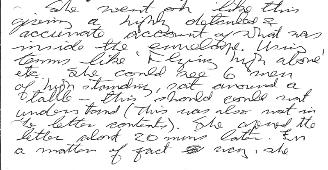 - She went on like this
giving a highly detailed &
accurate account of what was
inside the envelope. Using
terms like 'Flying high alone'
etc. She could see 6 men
of high standing, sat around a
table - this should could not
understand (This was also not in
the letter contents). She opened the
letter about 20 mins later. In
a matter of fact way, she